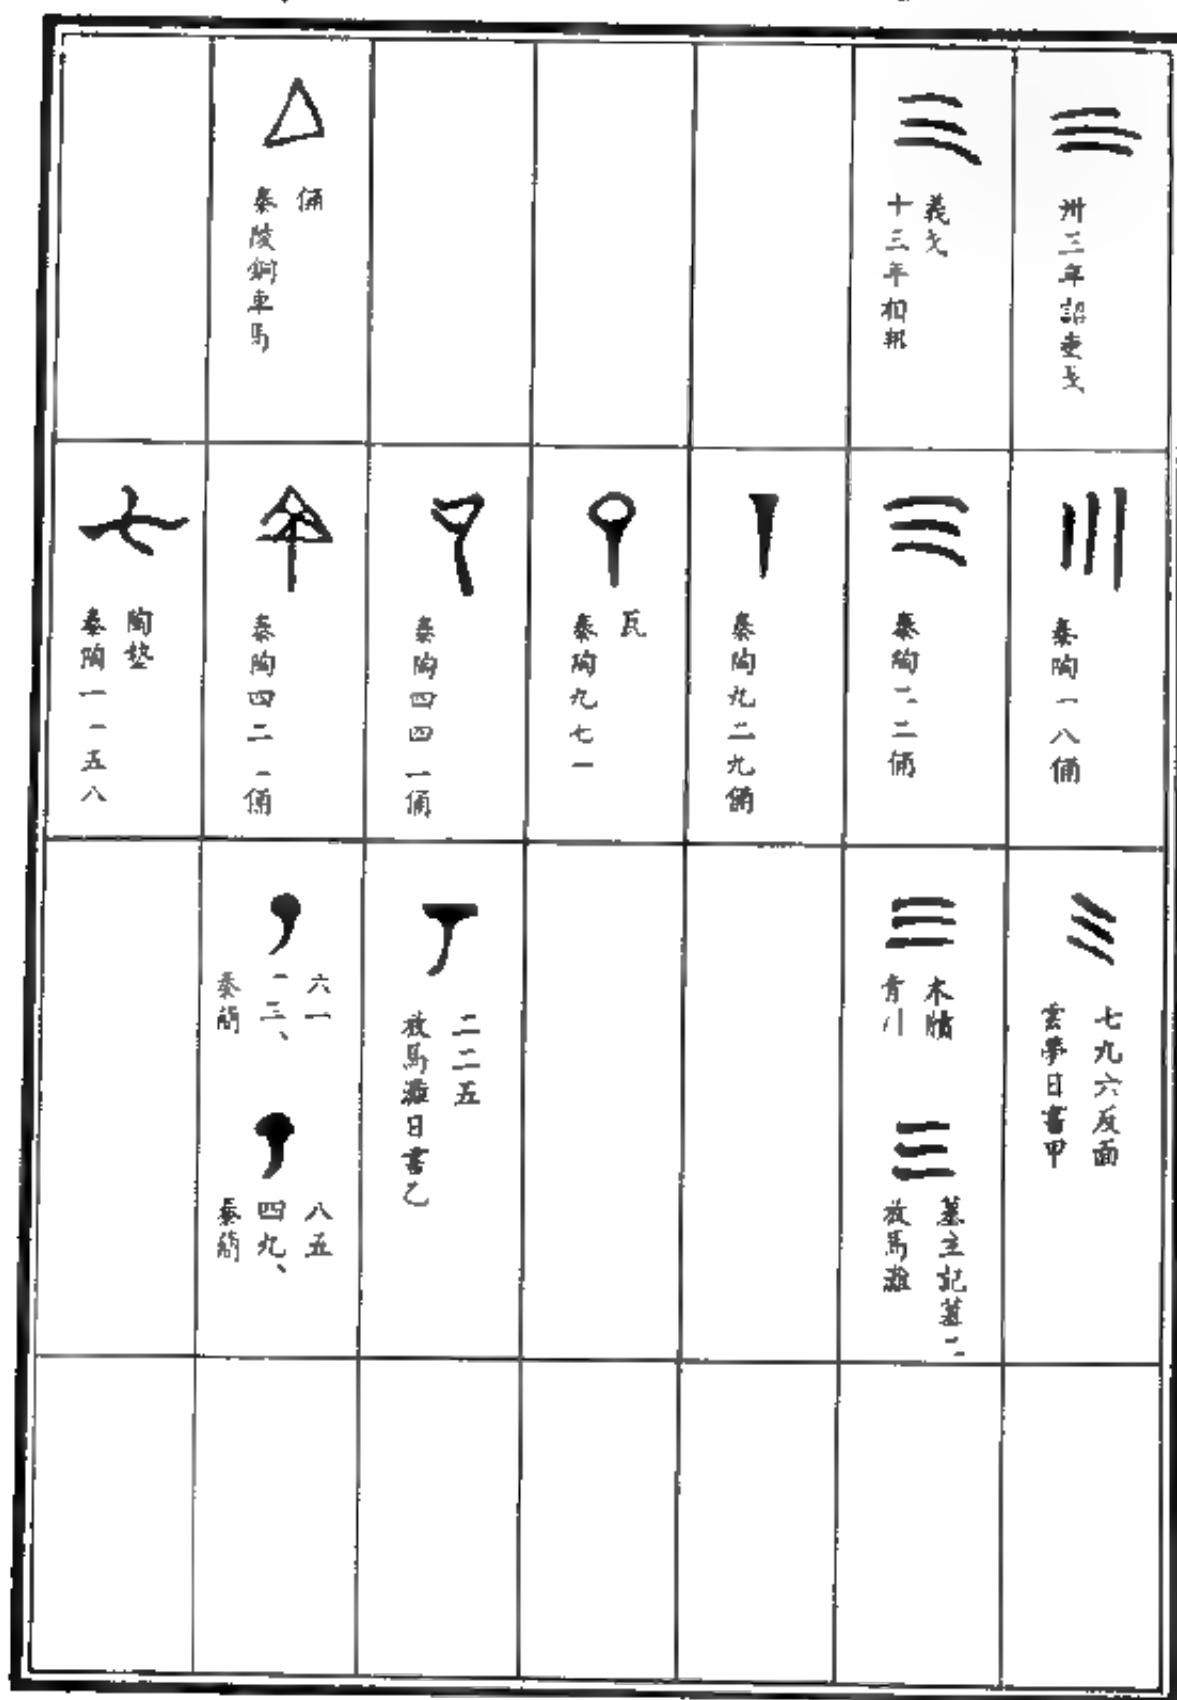 三
卅三年詔事戈
三
十三年相邦
義戈
秦陵銅車馬
俑
三
秦陶一八俑
三
秦陶二二俑
丁
秦陶九二九俑
秦陶九七一
瓦
秦陶四四一俑
秦陶四二一俑
七
秦陶一一五八
陶墊
三
雲夢日書甲
七九六反面
三
青川
木牘
三
放馬灘
墓主記墓一
丁
放馬灘日書乙
二二五
秦簡
一三、
六一
秦簡
四九、
八五